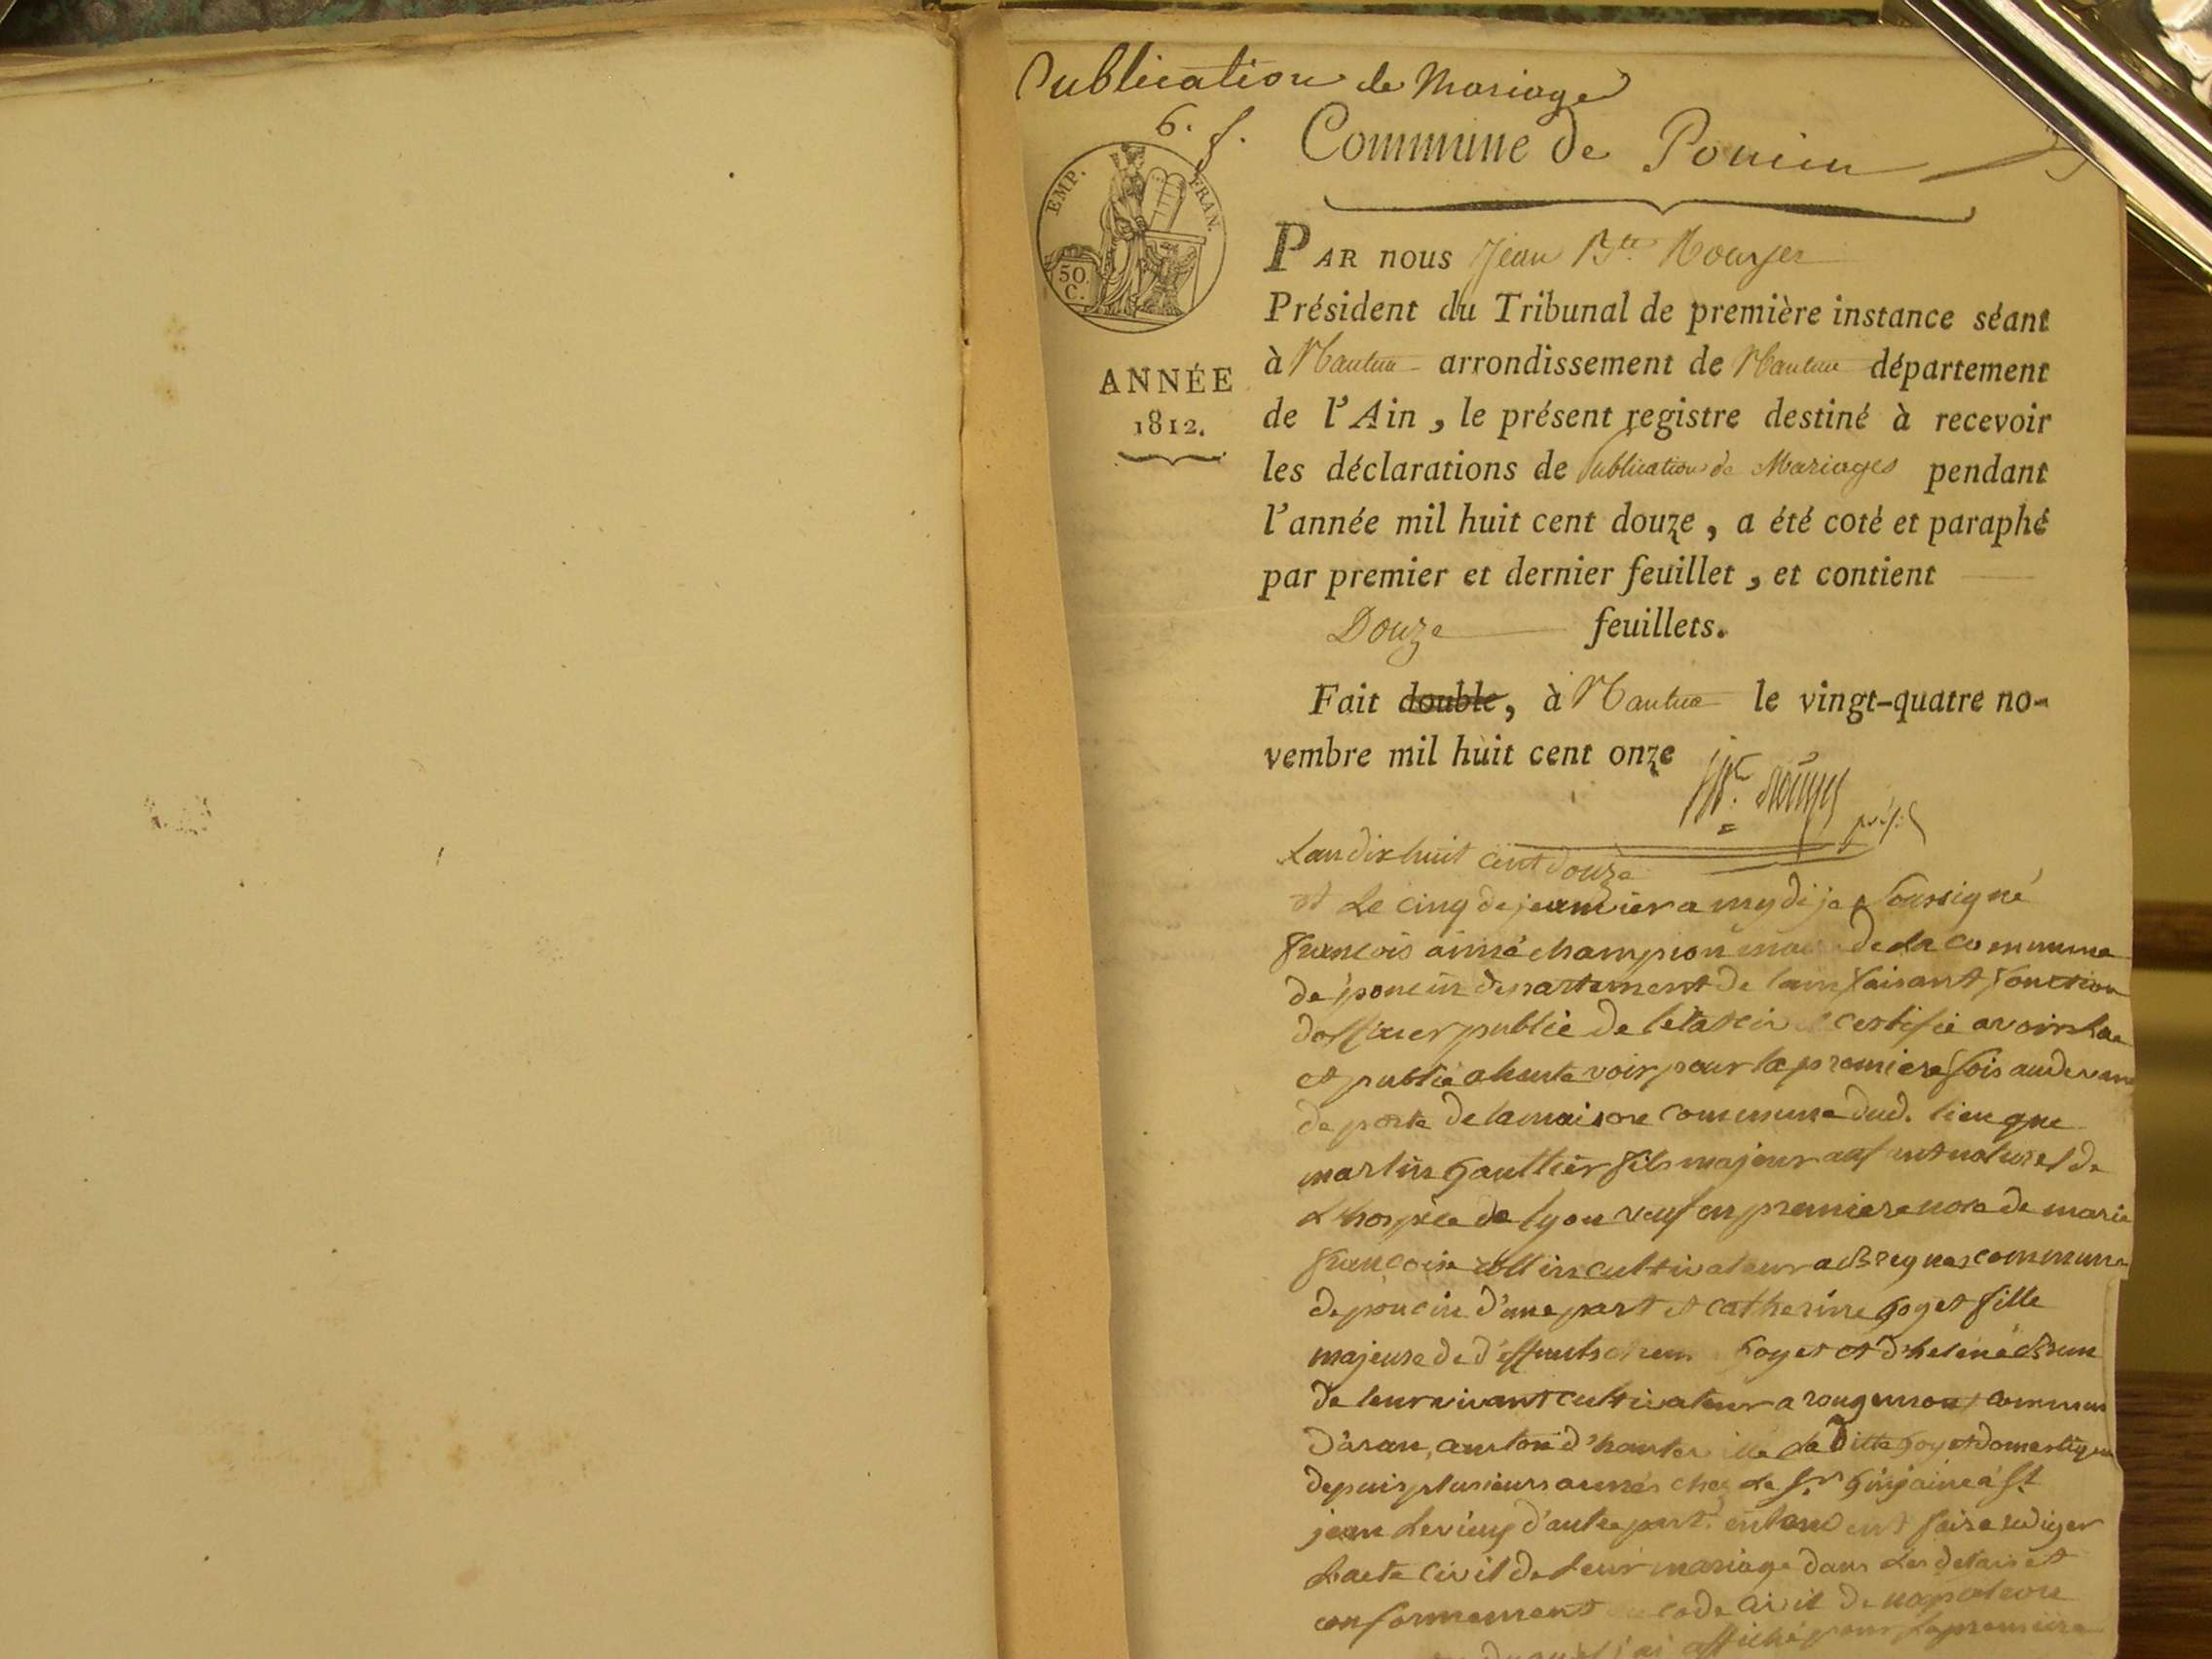 Publication de Mariage
6. f.
Commune de Poncin
EMP. FRAN.
50 C.
ANNÉE
1812.
PAR nous Jean Bte. Rouyer
Président du Tribunal de première instance séant
à Nantua arrondissement de Nantua département
de l'Ain, le présent registre destiné à recevoir
les déclarations de Publication de Mariages pendant
l'année mil huit cent douze, a été coté et paraphé
par premier et dernier feuillet, et contient
Douze feuillets.
Fait double, à Nantua le vingt-quatre no-
vembre mil huit cent onze
Lan dix huit cent douze
et Le cinq de jeanvier a mydi je Soussigné
françois aimé champion de la commune
de poncin departement de lain faisant fonction
dofficier public de letat certifie avoir lue
et publié a haute voix pour la premiere fois au devant
de porte de la maison commune dud. lieu que
martin gauthier fils majeur naturel de
L'hospice de lyon veuf en premiere noce de marie
françoise cultivateur a commune
de poncin d'une part et catherine goyet fille
majeure de deffunts goyet et d'helene Brun
de leur vivant cultivateur a rougemont commun
D'aran, canton d'hauteville La ditte goyet domestique
depuis plusieurs années chez le Sr. a St
jean Le vieux d'autre part. entendent faire rediger
Lacte civil de leur mariage dans Les delais et
conformement code civil de napoleon
j'ai affiché pour La premiere